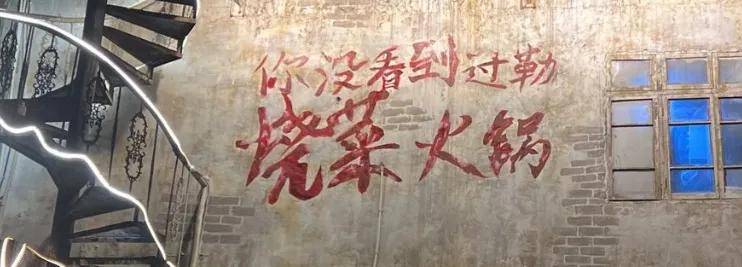 你没看到过勒
烧菜火锅